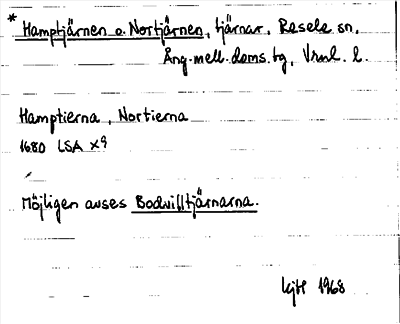 * Hamptjärnen o. Nortjärnen, tjärnar, Resele sn,
Ång. mell. doms. tg, Vrnl. l.
Hamptierna, Nortierna
1680 LSA X9
Möjligen avses Bodvilltjärnarna.
1968